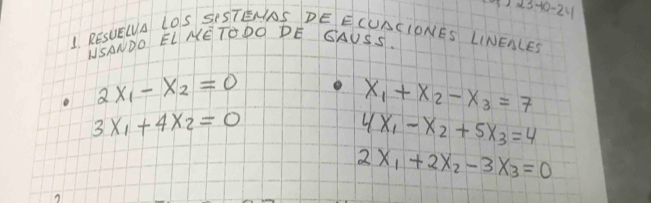 23-10-24
1. RESUELVA LOS SISTEMAS DE ECUACIONES LINEALES
USANDO EL MÉTODO DE GAUSS.
• 2x₁ - x₂ = 0
3x₁ + 4x₂ = 0
• x₁ + x₂ - x₃ = 7
4x₁ - x₂ + 5x₃ = 4
2x₁ + 2x₂ - 3x₃ = 0